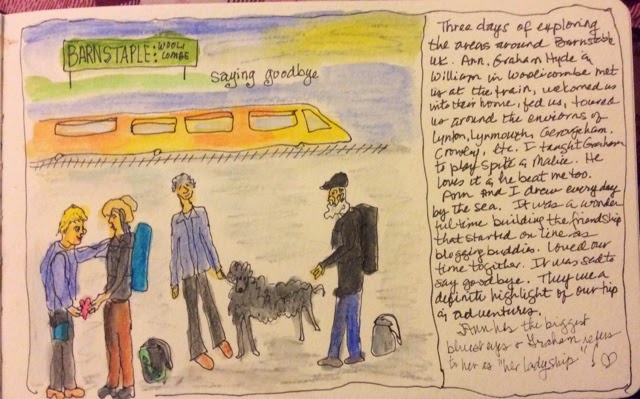 BARNSTAPLE: WOOLI
COMBE
saying goodbye
Three days of exploring
the areas around Barnstable
UK. Ann, Graham Hyde &
William in Woolicombe met
us at the train, welcomed us
into their home, fed us, toured
us around the environs of
Lynton, Lynmouth, Georgeham,
etc. I taught Graham
to play Spite & Malice. He
loves it & he beat me too.
Ann and I drew every day
by the sea. It was a wonder
ful time building the friendship
that started on line as
blogging buddies. Loved our
time together. It was sad to
say goodbye. They were a
definite highlight of our trip
& adventures.
Ann has the biggest
blues eyes & Graham refers
to her as "her ladyship"!